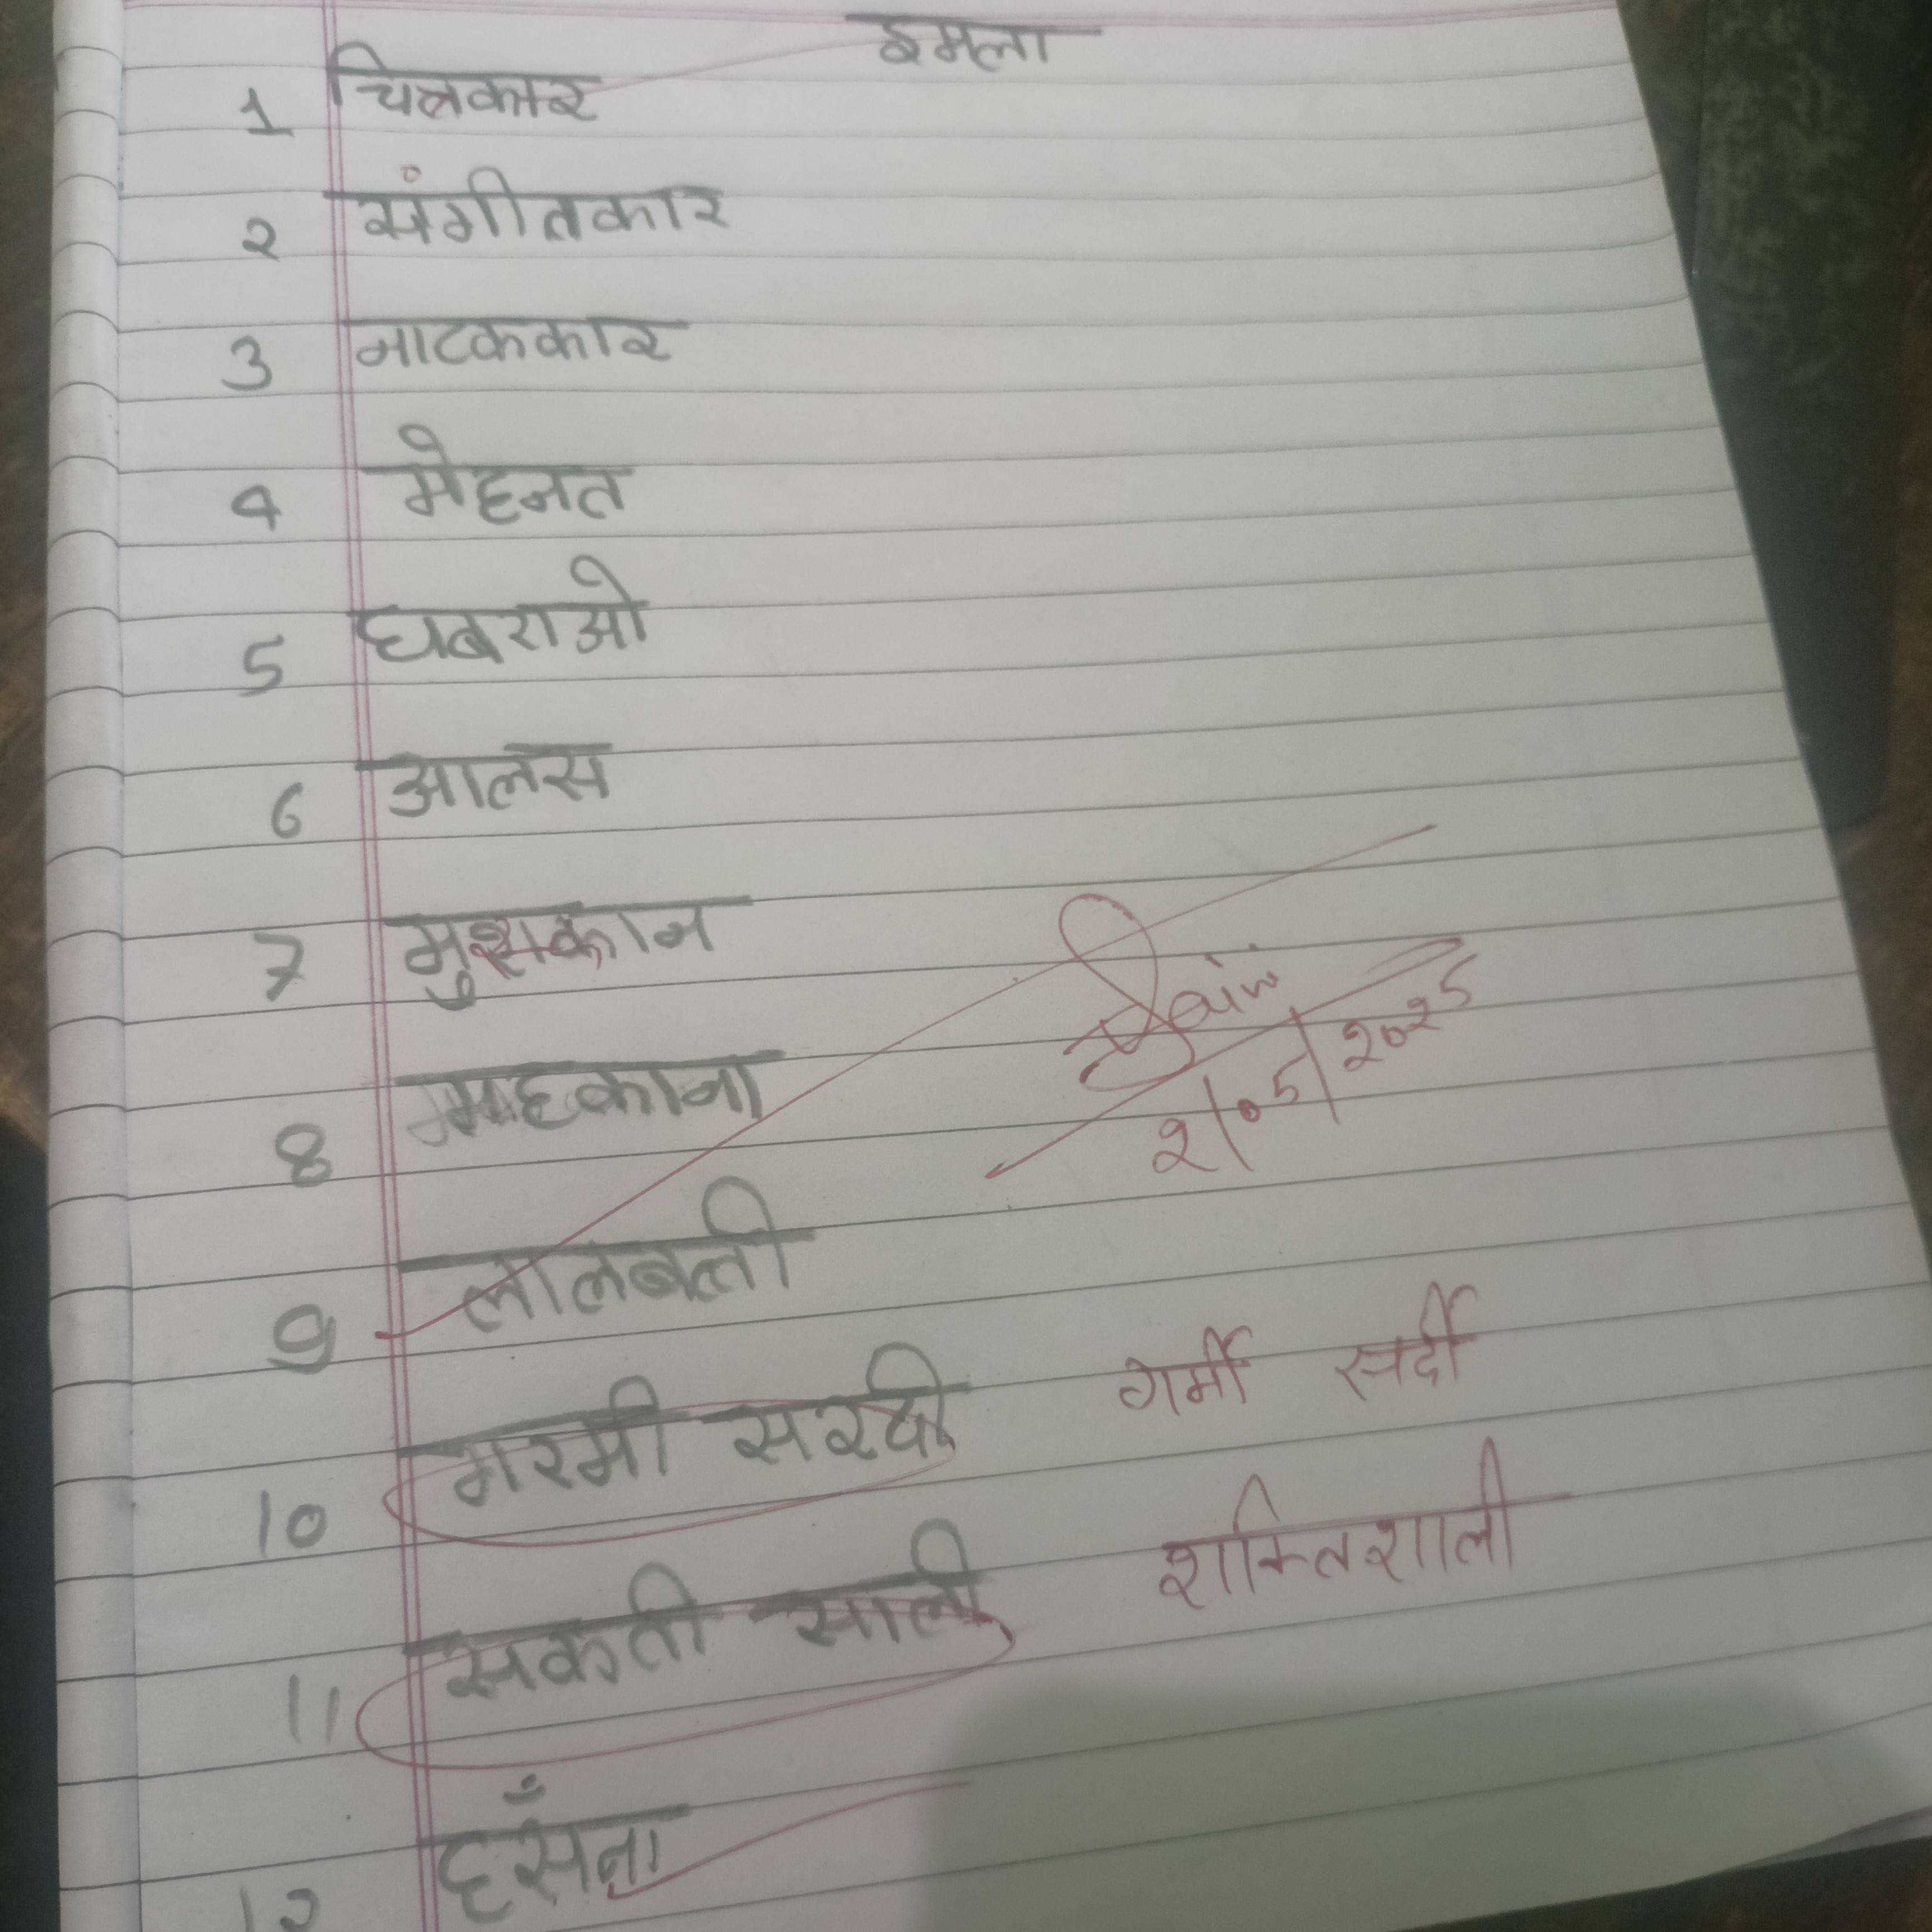 इमला
1 चित्रकार
2 संगीतकार
3 नाटककार
4 मेहनत
5 घबराओ
6 आलस
7 मुश्कान
8 महकाना
9 लालबत्ती
10 गरमी सरदी गर्मी सर्दी
11 सकती साली शक्तिशाली
12 हसँना
Jain
2/05/2025